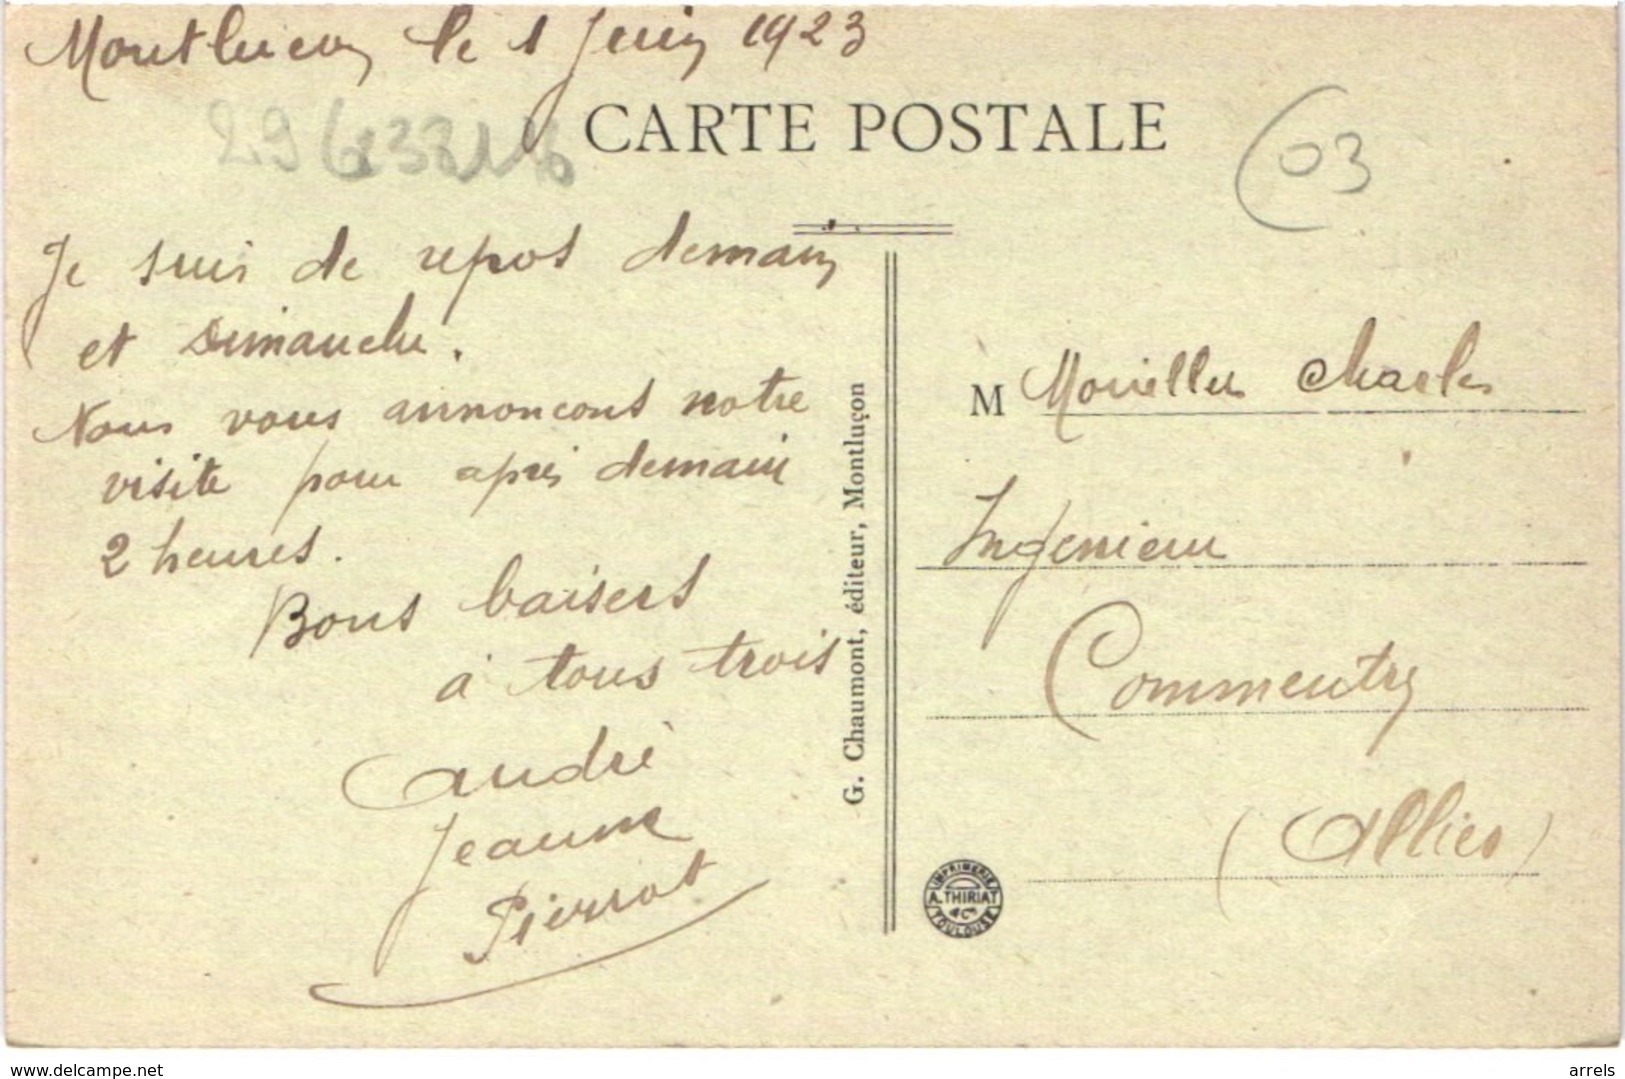 Montlucon le 1 Juin 1923
CARTE POSTALE
03
Je suis de repos demain
et Dimanche.
Nous vous annoncons notre
visite pour après demain
2 heures.
Bons baisers
à tous trois
André
Jeanne
Pierrot
G. Chaumont, éditeur, Montluçon
M Charles
Ingenieur
Commentry
(Allier)
IMPRIMERIE
A. THIRIAT
& Cie
TOULOUSE
www.delcampe.net
arrels